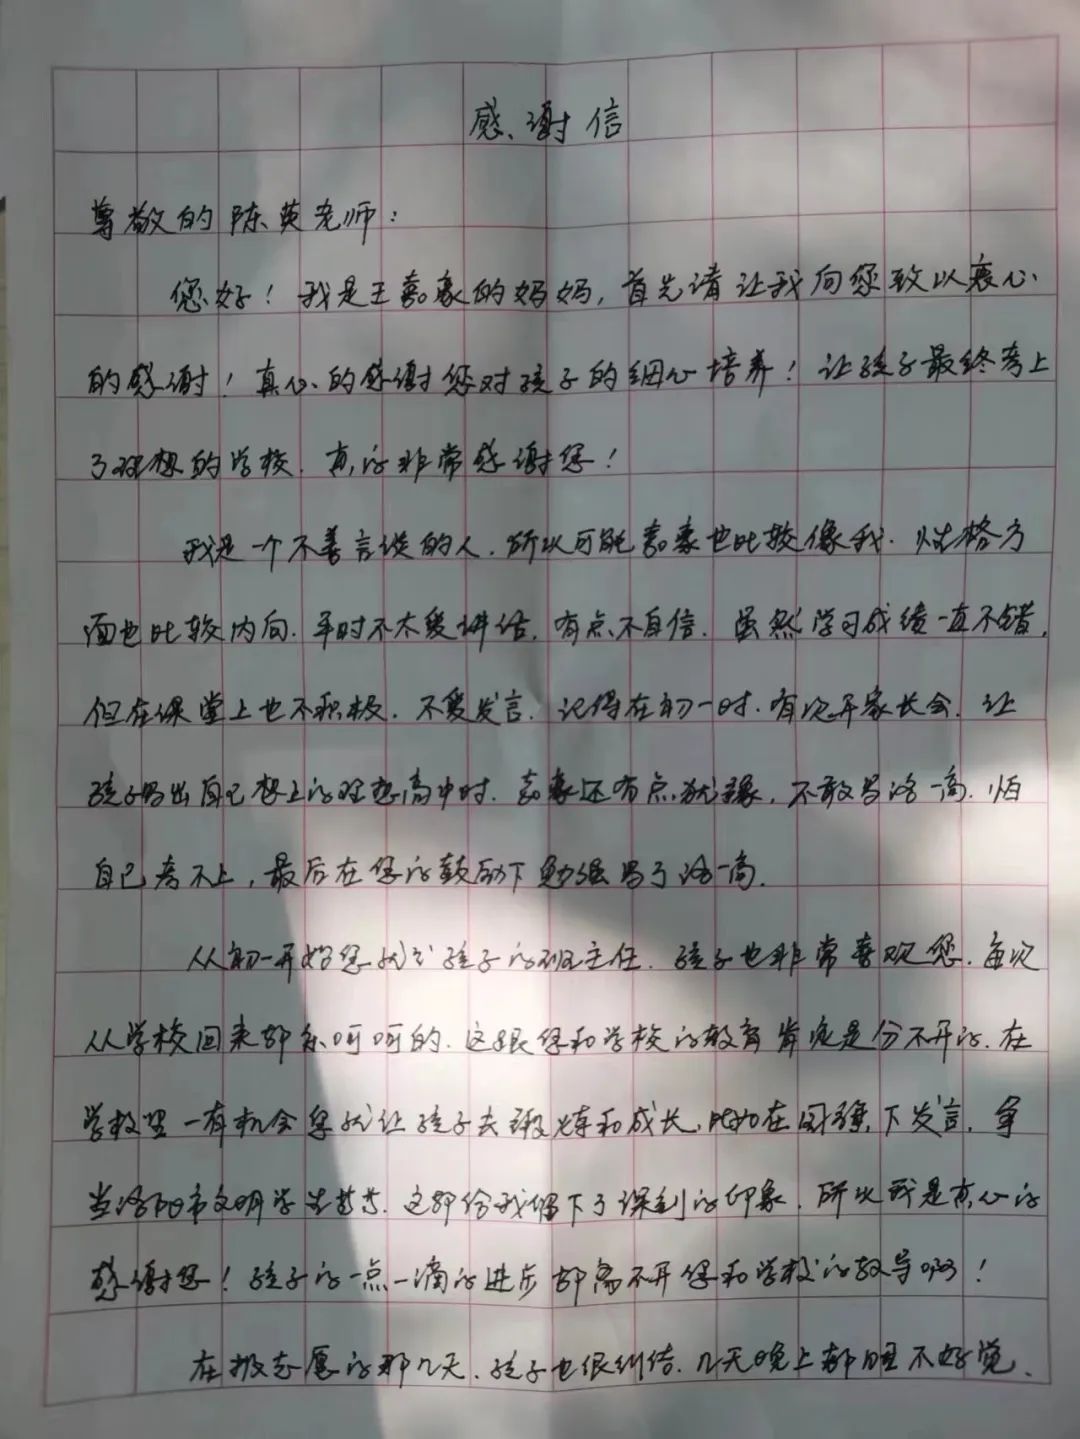 感谢信
尊敬的陈英老师:
您好！我是王嘉豪的妈妈,首先请让我向您致以衷心
的感谢！真心的感谢您对孩子的细心培养！让孩子最终考上
了理想的学校.真的非常感谢您！
我是一个不善言谈的人.所以可能嘉豪也比较像我.性格方
面也比较内向.平时不太爱讲话.有点不自信.虽然学习成绩一直不错.
但在课堂上也不积极.不爱发言.记得在初一时.有次开家长会.让
孩子写出自己想上的理想高中时.嘉豪还有点犹豫,不敢写洛一高.怕
自己考不上,最后在您的鼓励下勉强写了洛一高.
从初一开始您就是孩子的班主任.孩子也非常喜欢您.每次
从学校回来都乐呵呵的.这跟您和学校的教育肯定是分不开的.在
学校里一有机会您就让孩子去锻炼和成长,比如在国旗下发言.争
当洛阳市文明学生等等.这都给我留下了深刻的印象.所以我是真心的
感谢您！孩子的一点一滴的进步都离不开您和学校的教导啊！
在报志愿的那几天.孩子也很纠结.几天晚上都睡不好觉.